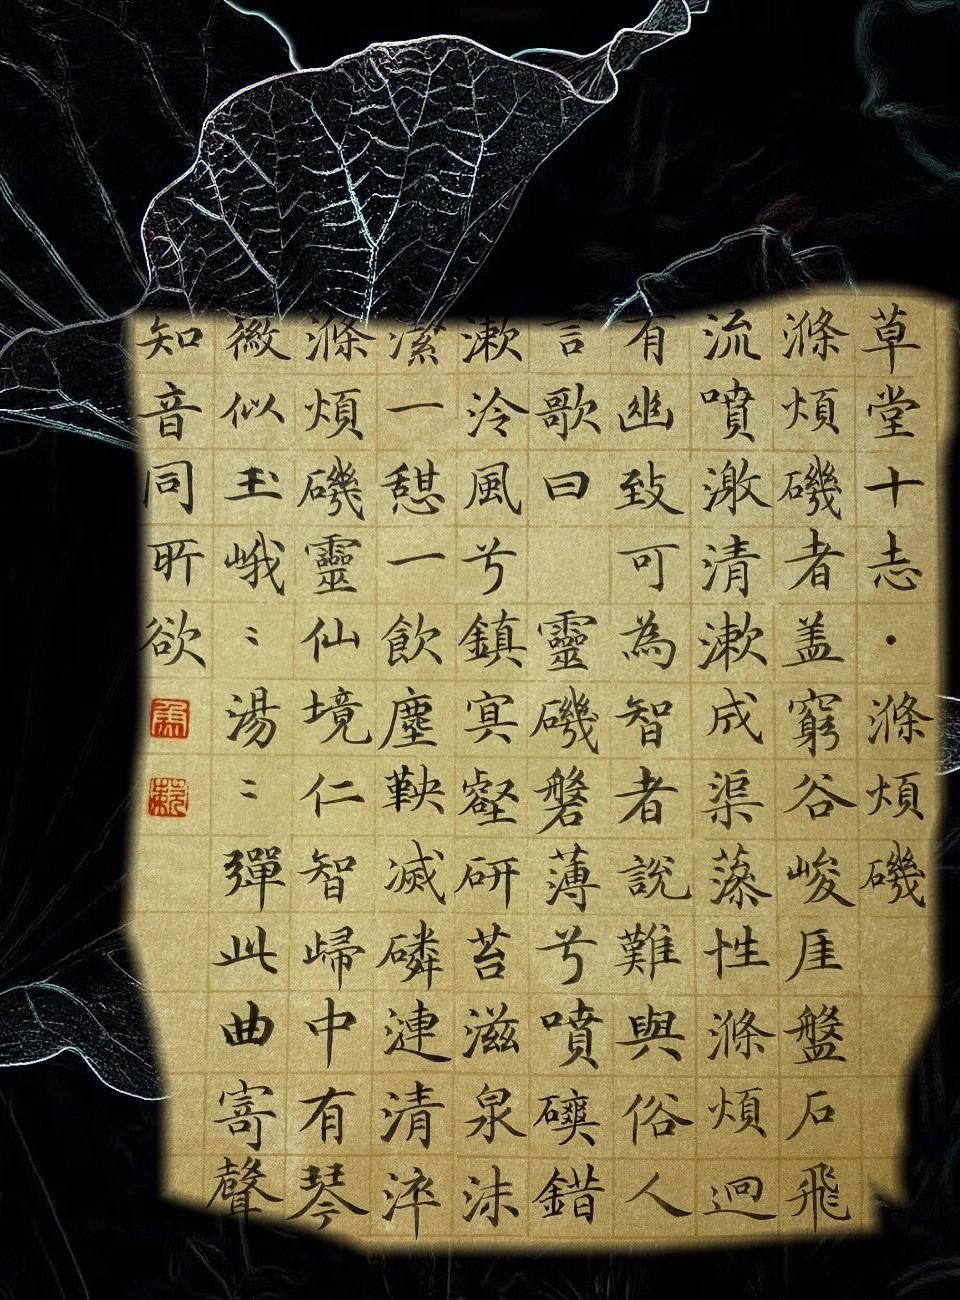 草堂十志·滌煩磯
滌煩磯者盖窮谷峻厓盤石飛
流噴激清漱成渠藻性滌煩迥
有幽致可為智者說難與俗人
言歌曰 靈磯磐薄兮噴𥗫錯
漱泠風兮鎮冥壑研苔滋泉沫
潔一憇一飲塵鞅滅磷漣清淬
滌煩磯靈仙境仁智歸中有琴
徽似玉峨〻湯〻彈此曲寄聲
知音同所欲